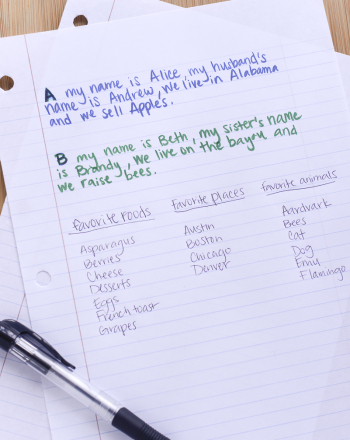 A my name is Alice, my husband's
name is Andrew, we live in Alabama
and we sell Apples.
B my name is Beth, my sister's name
is Brandy, we live on the bayou and
we raise bees.
favorite foods
Asparagus
Berries
Cheese
Desserts
Eggs
French toast
Grapes
favorite places
Austin
Boston
Chicago
Denver
favorite animals
Aardvark
Bees
Cat
Dog
Emu
Flamingo